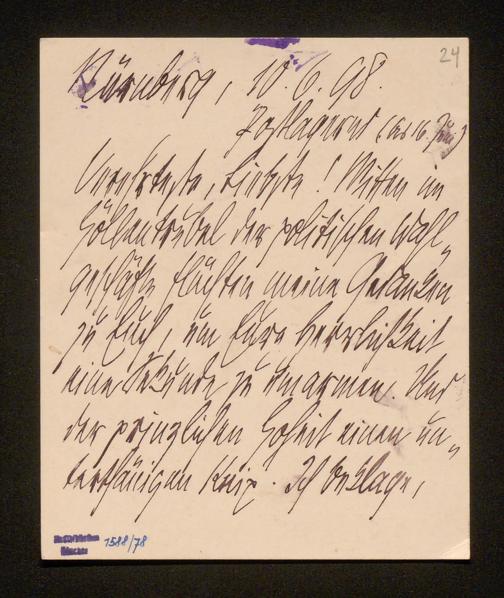 24
Nürnberg, 10.6.98.
Postlagernd (bis 16. Juni)
Verehrteste, Liebste! Mitten im
Höllentrubel der politischen Wahl-
geschäfte flüchten meine Gedanken
zu Euch, um Eure Herrlichkeit
eine Sekunde zu umarmen. Und
der prinzlichen Hoheit einen un-
terthänigen Knix. Ich beklage,
1588/78